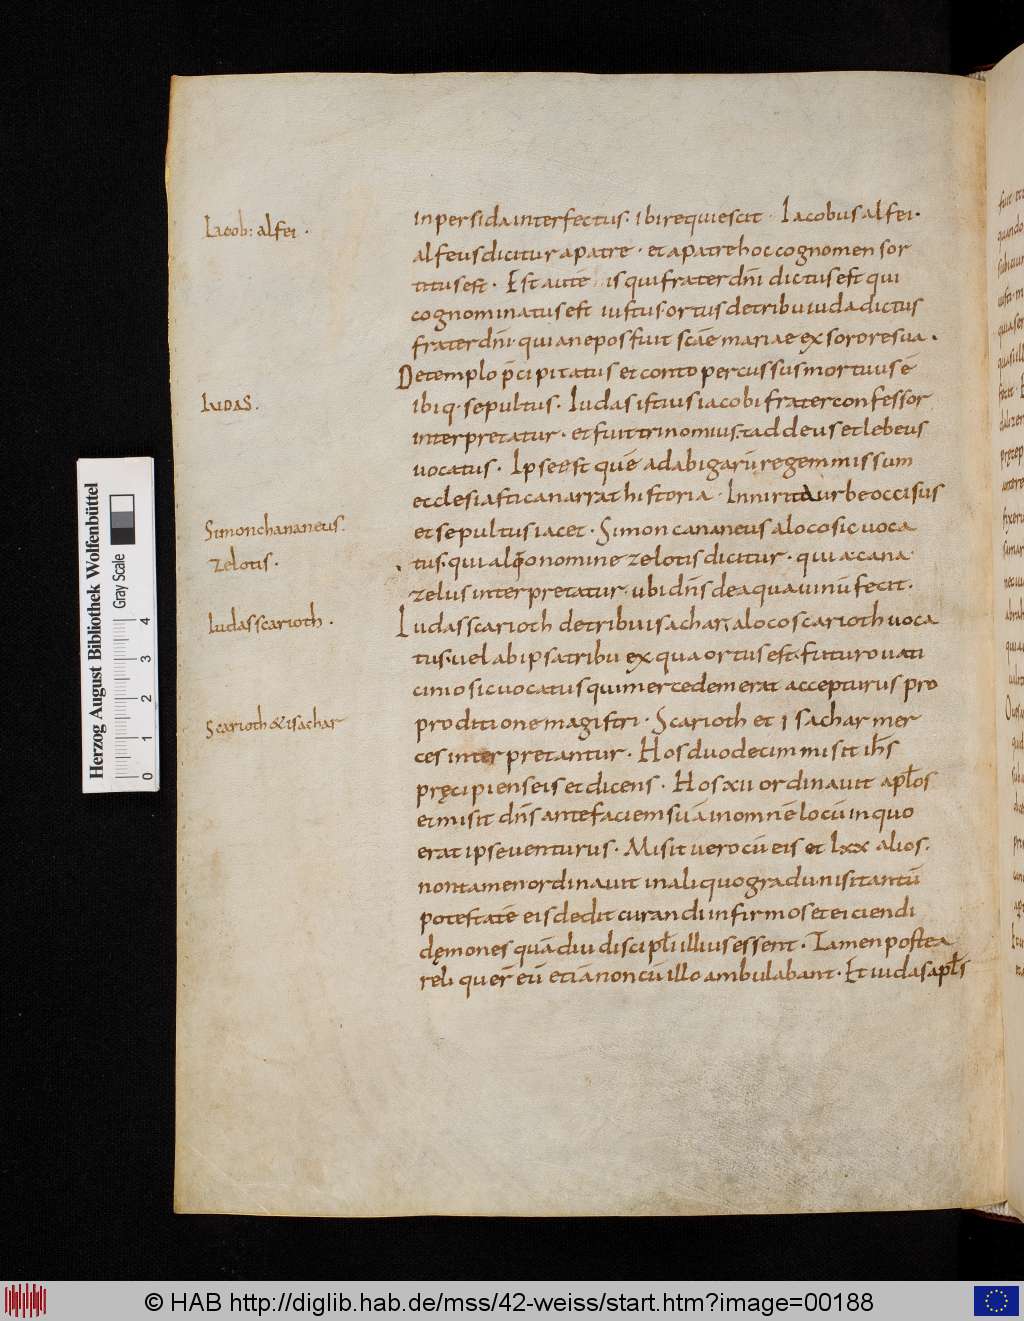 Iacob: alfei ·
inpersida interfectus · ibi requiescit · Iacobus alfei ·
alfeus dicitur apatre · et apatre hoc cognomen sor
titus est · Est autē is qui frater dn̄i dictus est qui
cognominatus est iustus ortus detribu iuda dictus
frater dn̄i · quia nepos fuit scāe mariae ex sorore sua ·
Detemplo p̄cipitatus et conto percussus mortuus ē
Iudas .
ibiq · sepultus · Iudas istius iacobi frater confessor
interpretatur · et fuit trinomius · taddeus et lebeus
uocatus · Ipse est quē adabigarū regem missum
ecclesiastica narrat historia · Innirita urbe occisus
Simon chananeus .
et sepultus iacet · Simon cananeus aloco sic uoca
Zelotis ·
tus · qui alio nomine zelotis dicitur · qui a cana
zelus interpretatur · ubi dn̄s deaqua uinū fecit .
Iudas scarioth ·
Iudas scarioth detribu isachar, aloco scarioth uoca
tus · uel ab ipsa tribu ex qua ortus est · futuro uati
cinio sic uocatus qui mercedem erat accepturus pro
Scarioth & isachar
proditione magistri · Scarioth et isachar mer
ces interpretantur · Hos duodecim misit ih̄s
pręcipiens eis et dicens · Hos xii ordinauit apl̄os
et misit dn̄s ante faciem suā in omnē locū in quo
erat ipse uenturus · Misit uero cū eis et lxx alios .
non tamen ordinauit in aliquo gradu nisi tantū
potestatē eis dedit curandi infirmos et eiciendi
dęmones quādiu discipl̄i illius essent · Tamen postea
reliquer̄ eū etiā non cū illo ambulabant · Et iudas apl̄s
Herzog August Bibliothek Wolfenbüttel
Gray Scale
0 1 2 3 4
© HAB http://diglib.hab.de/mss/42-weiss/start.htm?image=00188